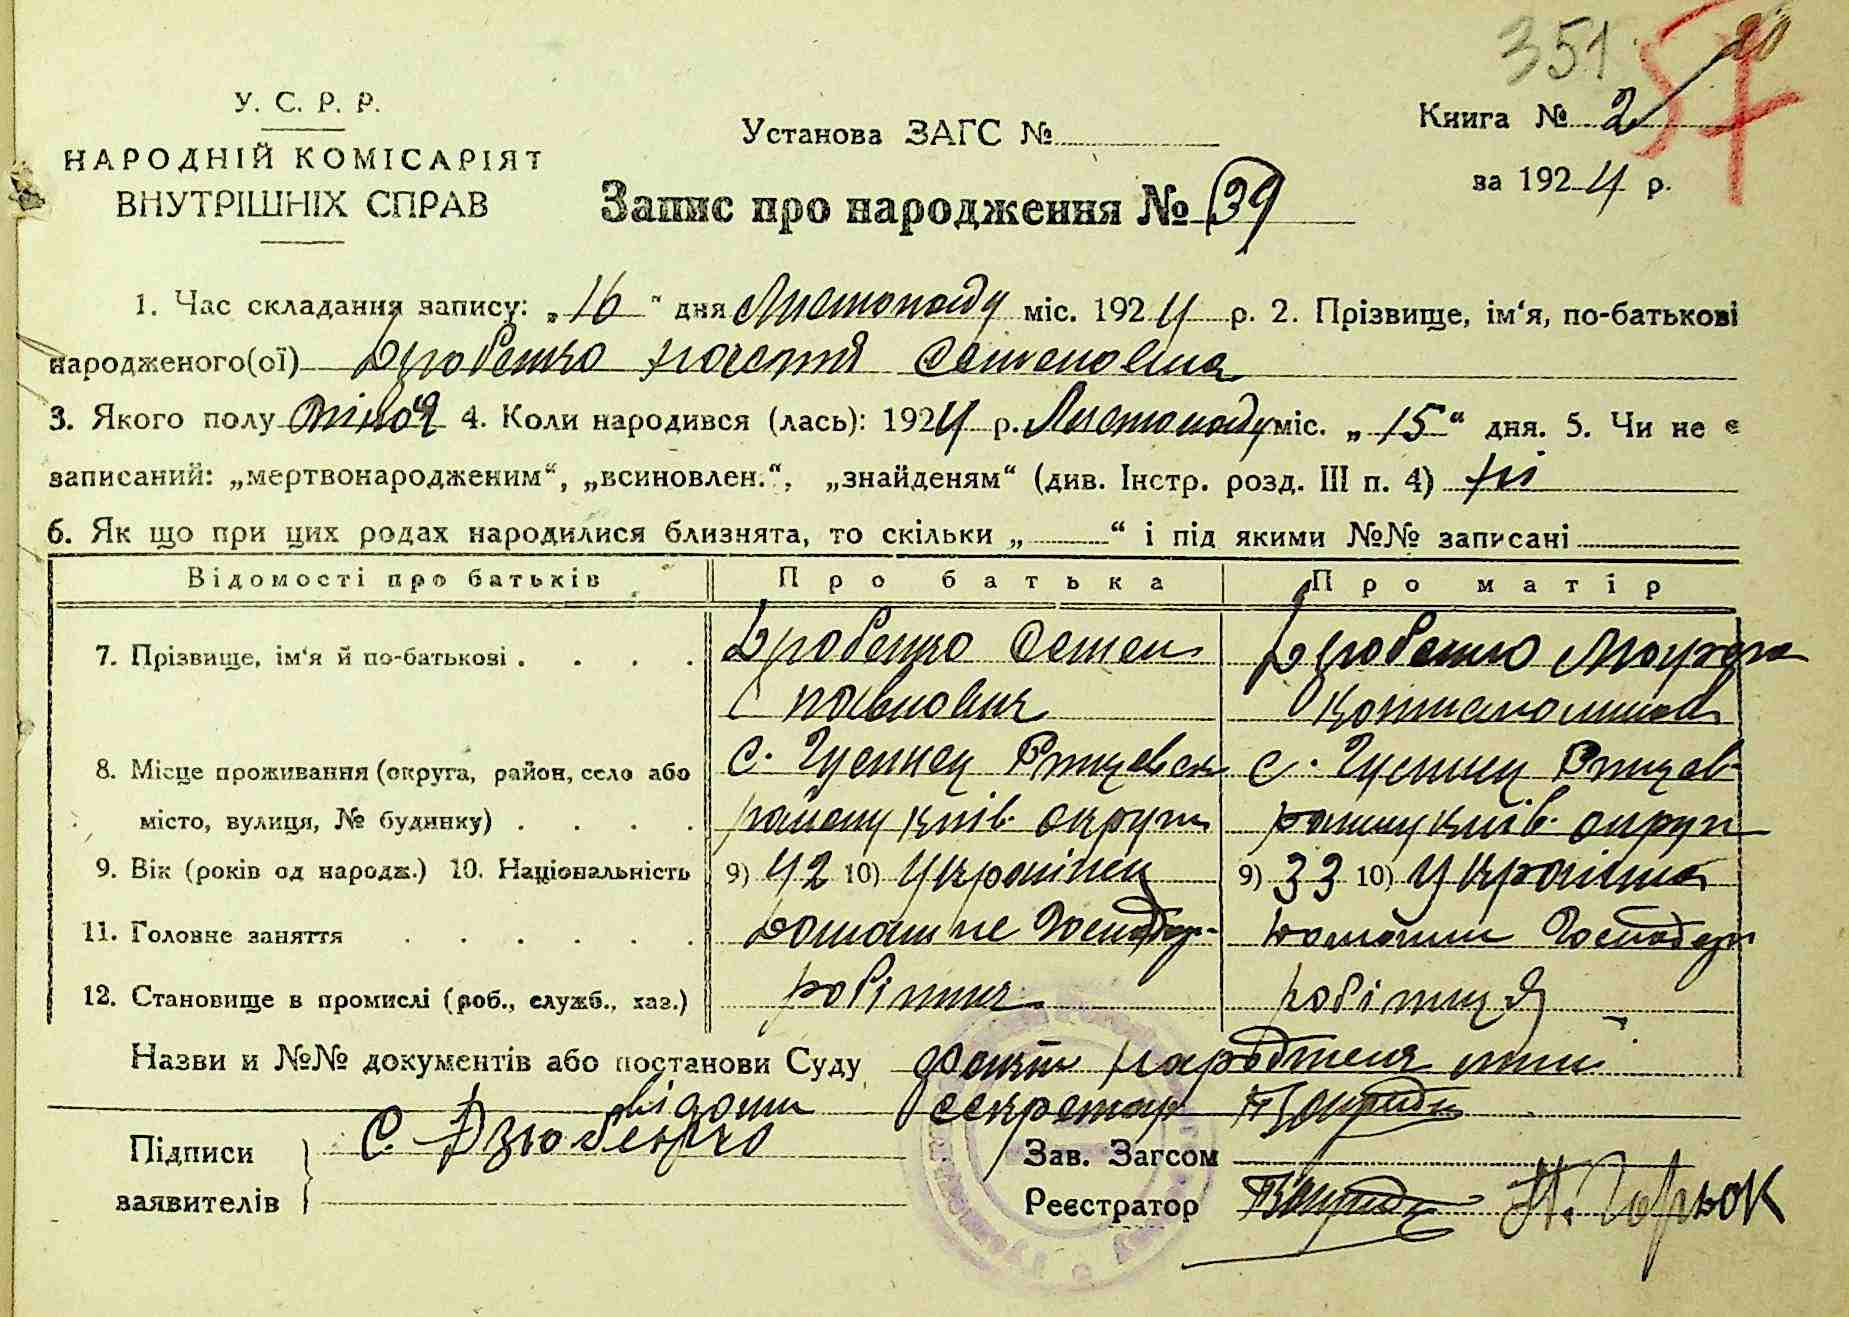 351
57
У. С. Р. Р.
НАРОДНІЙ КОМІСАРІЯТ
ВНУТРІШНІХ СПРАВ
Установа ЗАГС №
Книга № 2
за 1924 р.
Запис про народження № 39
1. Час складання запису: „16“ дня Листопаду міс. 1924 р. 2. Прізвище, ім‘я, по-батькові
народженого(ої) Дзюбенко Настя Семеновна
3. Якого полу жіноч 4. Коли народився (лась): 1924 р. Листопаду міс. „15“ дня. 5. Чи не є
записаний: „мертвонародженим“, „всиновлен.“, „знайденям“ (див. Інстр. розд. III п. 4) ні
6. Як що при цих родах народилися близнята, то скільки „ “ і під якими №№ записані
Відомості про батьків Про батька Про матір
7. Прізвище, ім‘я й по-батькові . . . . Дзюбенко Семен Дзюбенко
Павлович
8. Місце проживання (округа, район, село або с. Гусинец Ржищевск с. Гусинец Ржищев
місто, вулиця, № будинку) . . . . району Київ. округи району Київ. округи
9. Вік (років од народж.) 10. Національність 9) 42 10) Українец 9) 33 10) Українка
11. Головне заняття . . . . . . Домашне Господар- Домашнє Господар
12. Становище в промислі (роб., служб., хаз.) робітник робітниця
Назви и №№ документів або постанови Суду факт народженя мині
відоми секретар
Підписи С. Дзюбенко Зав. Загсом
заявителів Реєстратор Н. Горьок